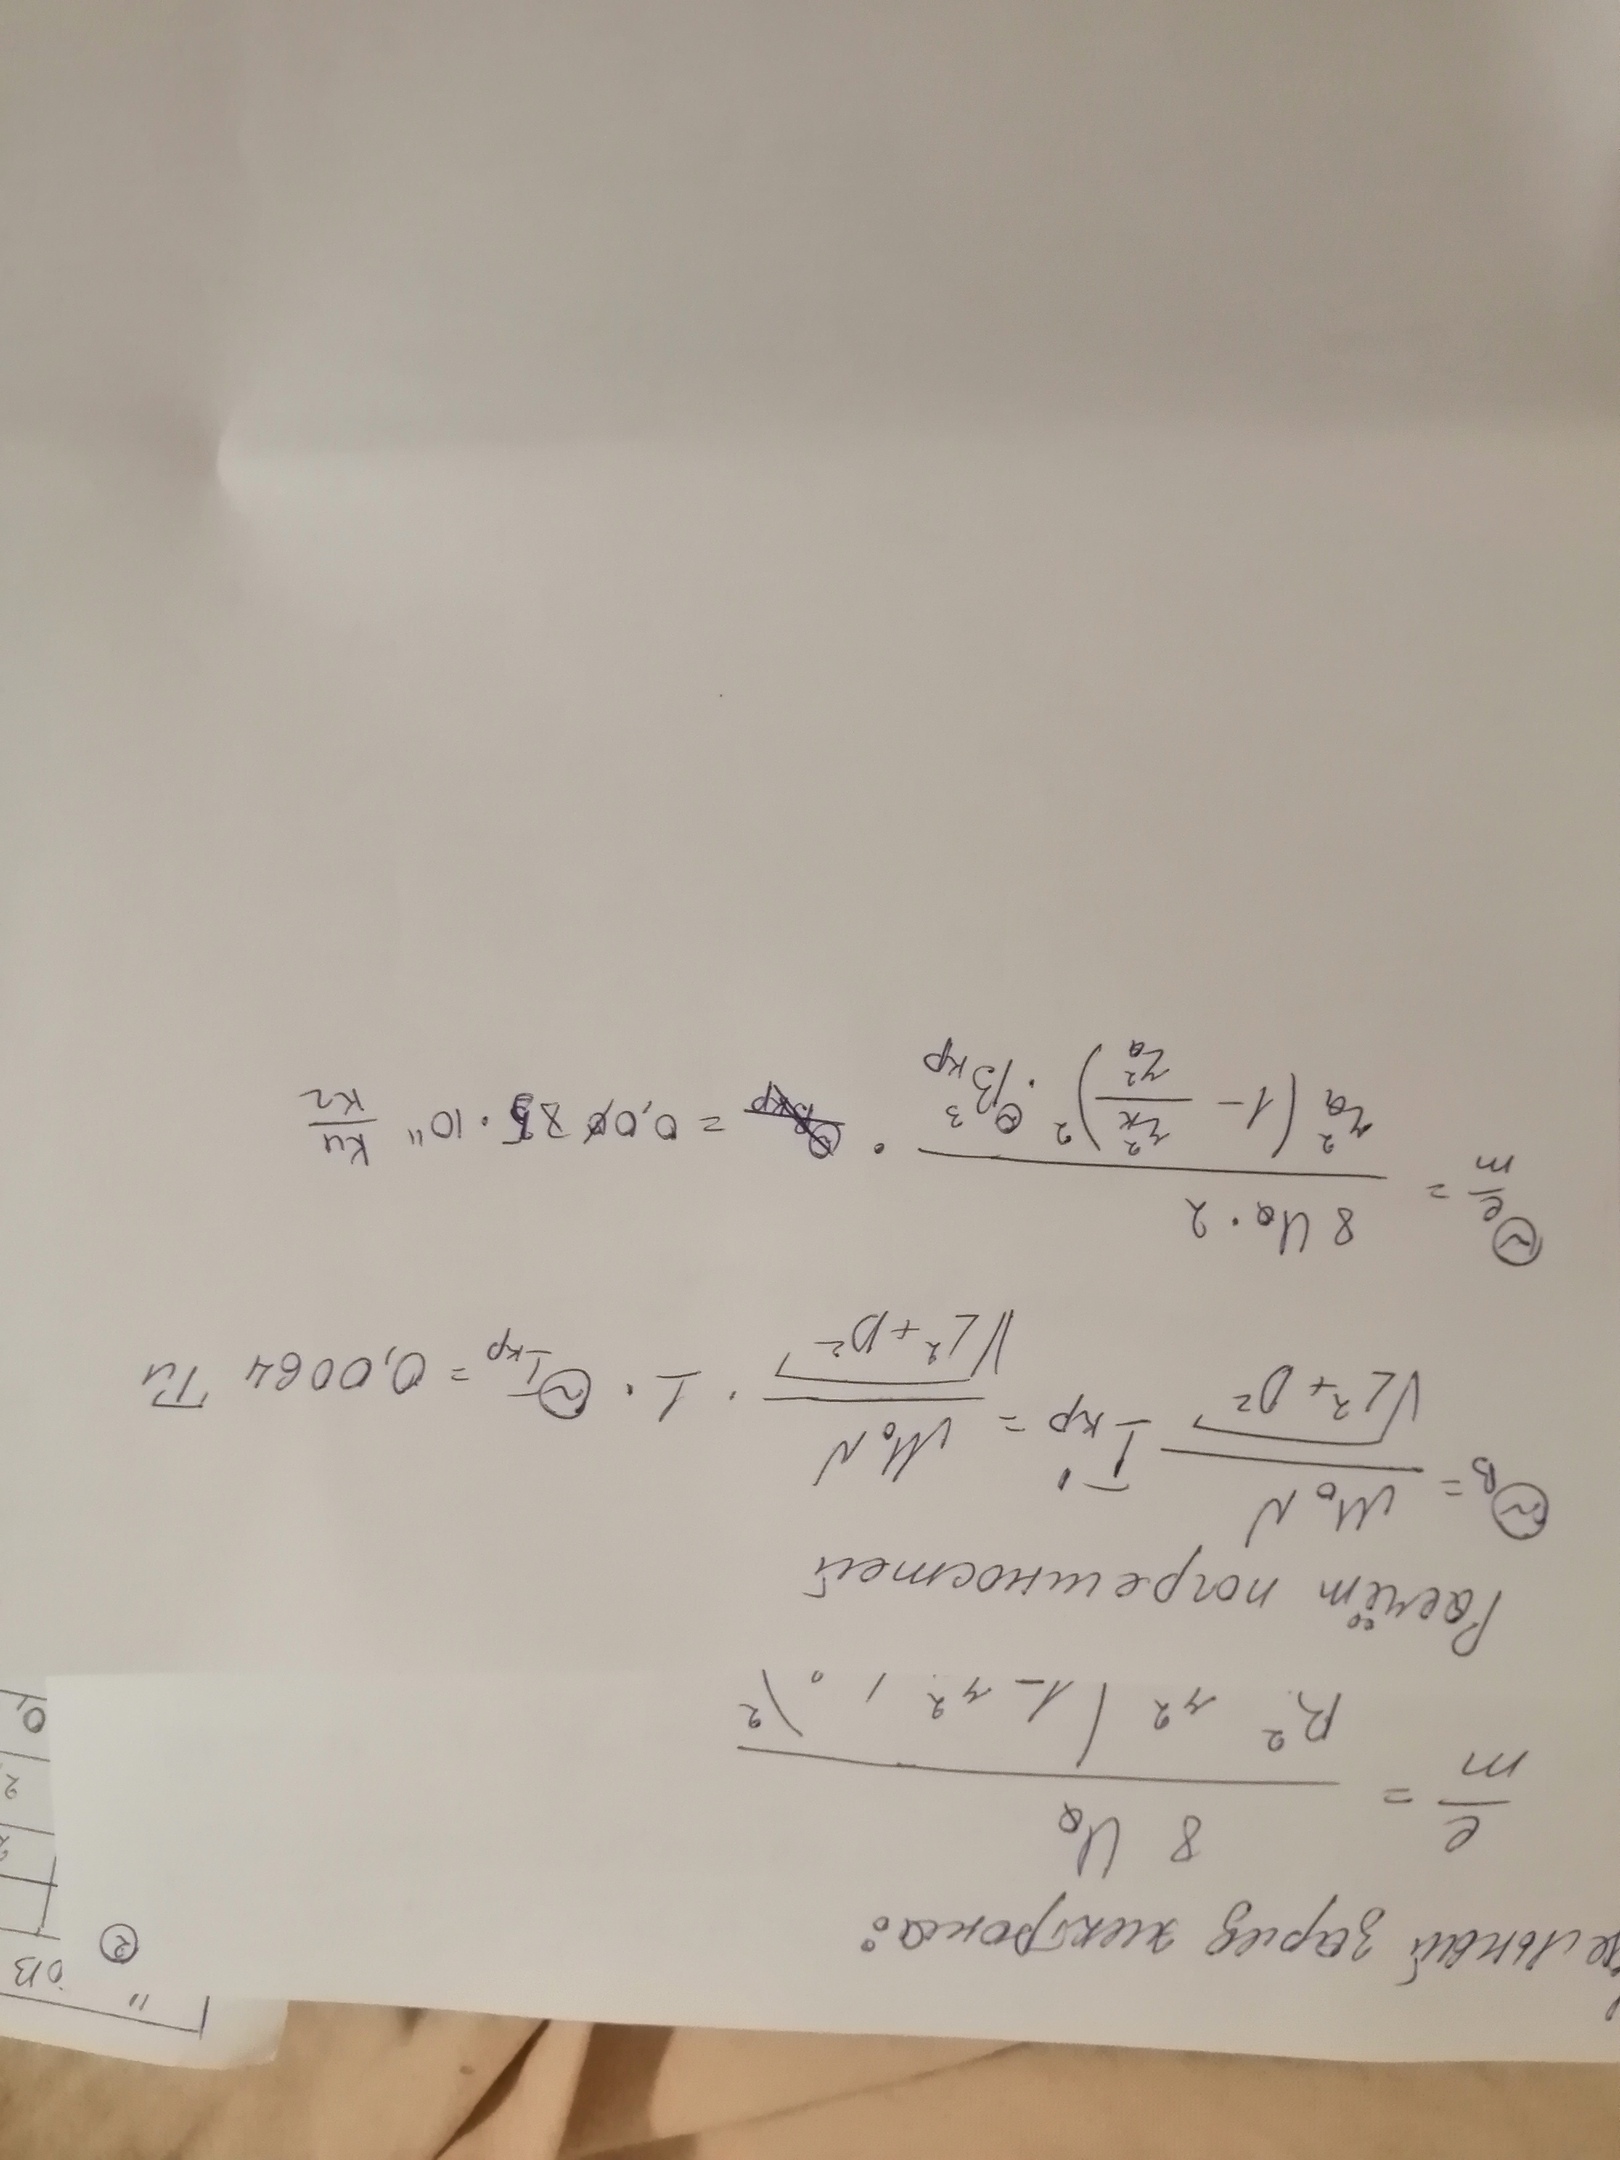 дельный заряд электрона:
②
ов
e/m = 8 Ua / B² r² (1 - r²
)²
2
2
0,
Расчёт погрешностей
Θ_B = M₀ N / √(L² + D²) I'кр = M₀ N / √(L² + D²) · 1 · Θ_Iкр = 0,0064 Тл
Θ_e/m = 8 Ua · 2 / rа² (1 - rк² / rа²)² · Θ Bкр³ · = 0,0085 · 10¹¹ Кл/кг